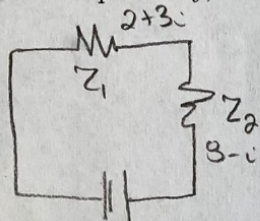 2+3i
Z₁
Z₂
9-i